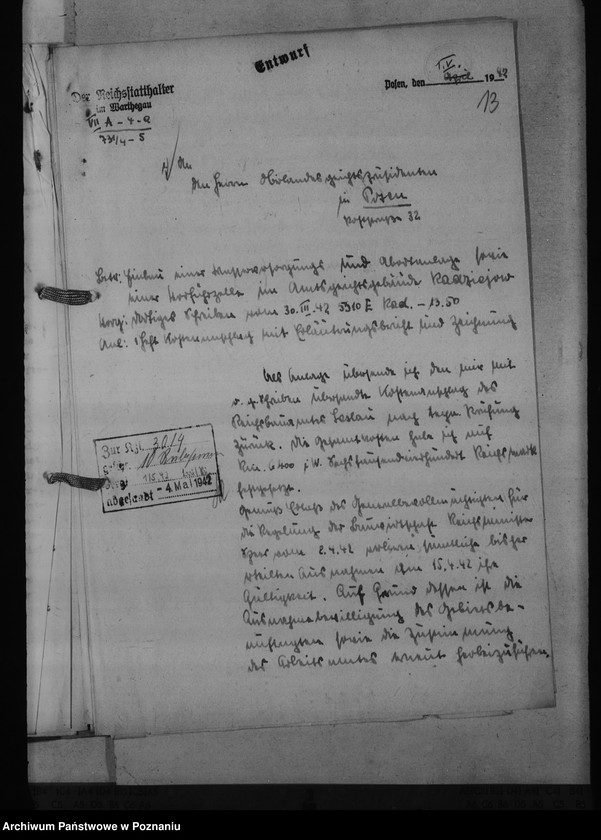 Entwurf
Der Reichsstatthalter
im Warthegau
VII A - 4 - a
Posen, den I.V. April 1942
13
An
den Herrn Oberlandesgerichtspräsidenten
in Posen
32
Betr: Einbau einer Wasserversorgungs und Abortanlage sowie
einer Vorführzelle im Amtsgerichtsgebäude Radziejow
Vorg: dortiges Schreiben vom 30.III.42 5310 E Rad. - 13.50
Anl: 1 Heft Kostenanschlag mit Erläuterungsbericht und Zeichnung
Als Anlage übersende ich den mir mit
Schreiben übersandte Kostenanschlag des
Reichsbauamtes Leslau nach techn. Prüfung
zurück. Die Gesamtkosten habe ich auf
i.W. Sechstausendvierhundert Reichsmark
festgesetzt.
Gemäß Erlass des Generalbevollmächtigten für
die Regelung der Bauwirtschaft Reichsminister
Speer vom 2.4.42 verlieren sämtliche bisher
erteilten Ausnahmen am 15.4.42 ihre
Gültigkeit. Auf Grund dessen ist die
Ausnahmebewilligung des Gebietsbe-
auftragten sowie die Zustimmung
des Arbeitsamtes erneut herbeizuführen.
Zur Kzl. 30/4
abgesandt - 4. Mai 1942
Archiwum Państwowe w Poznaniu